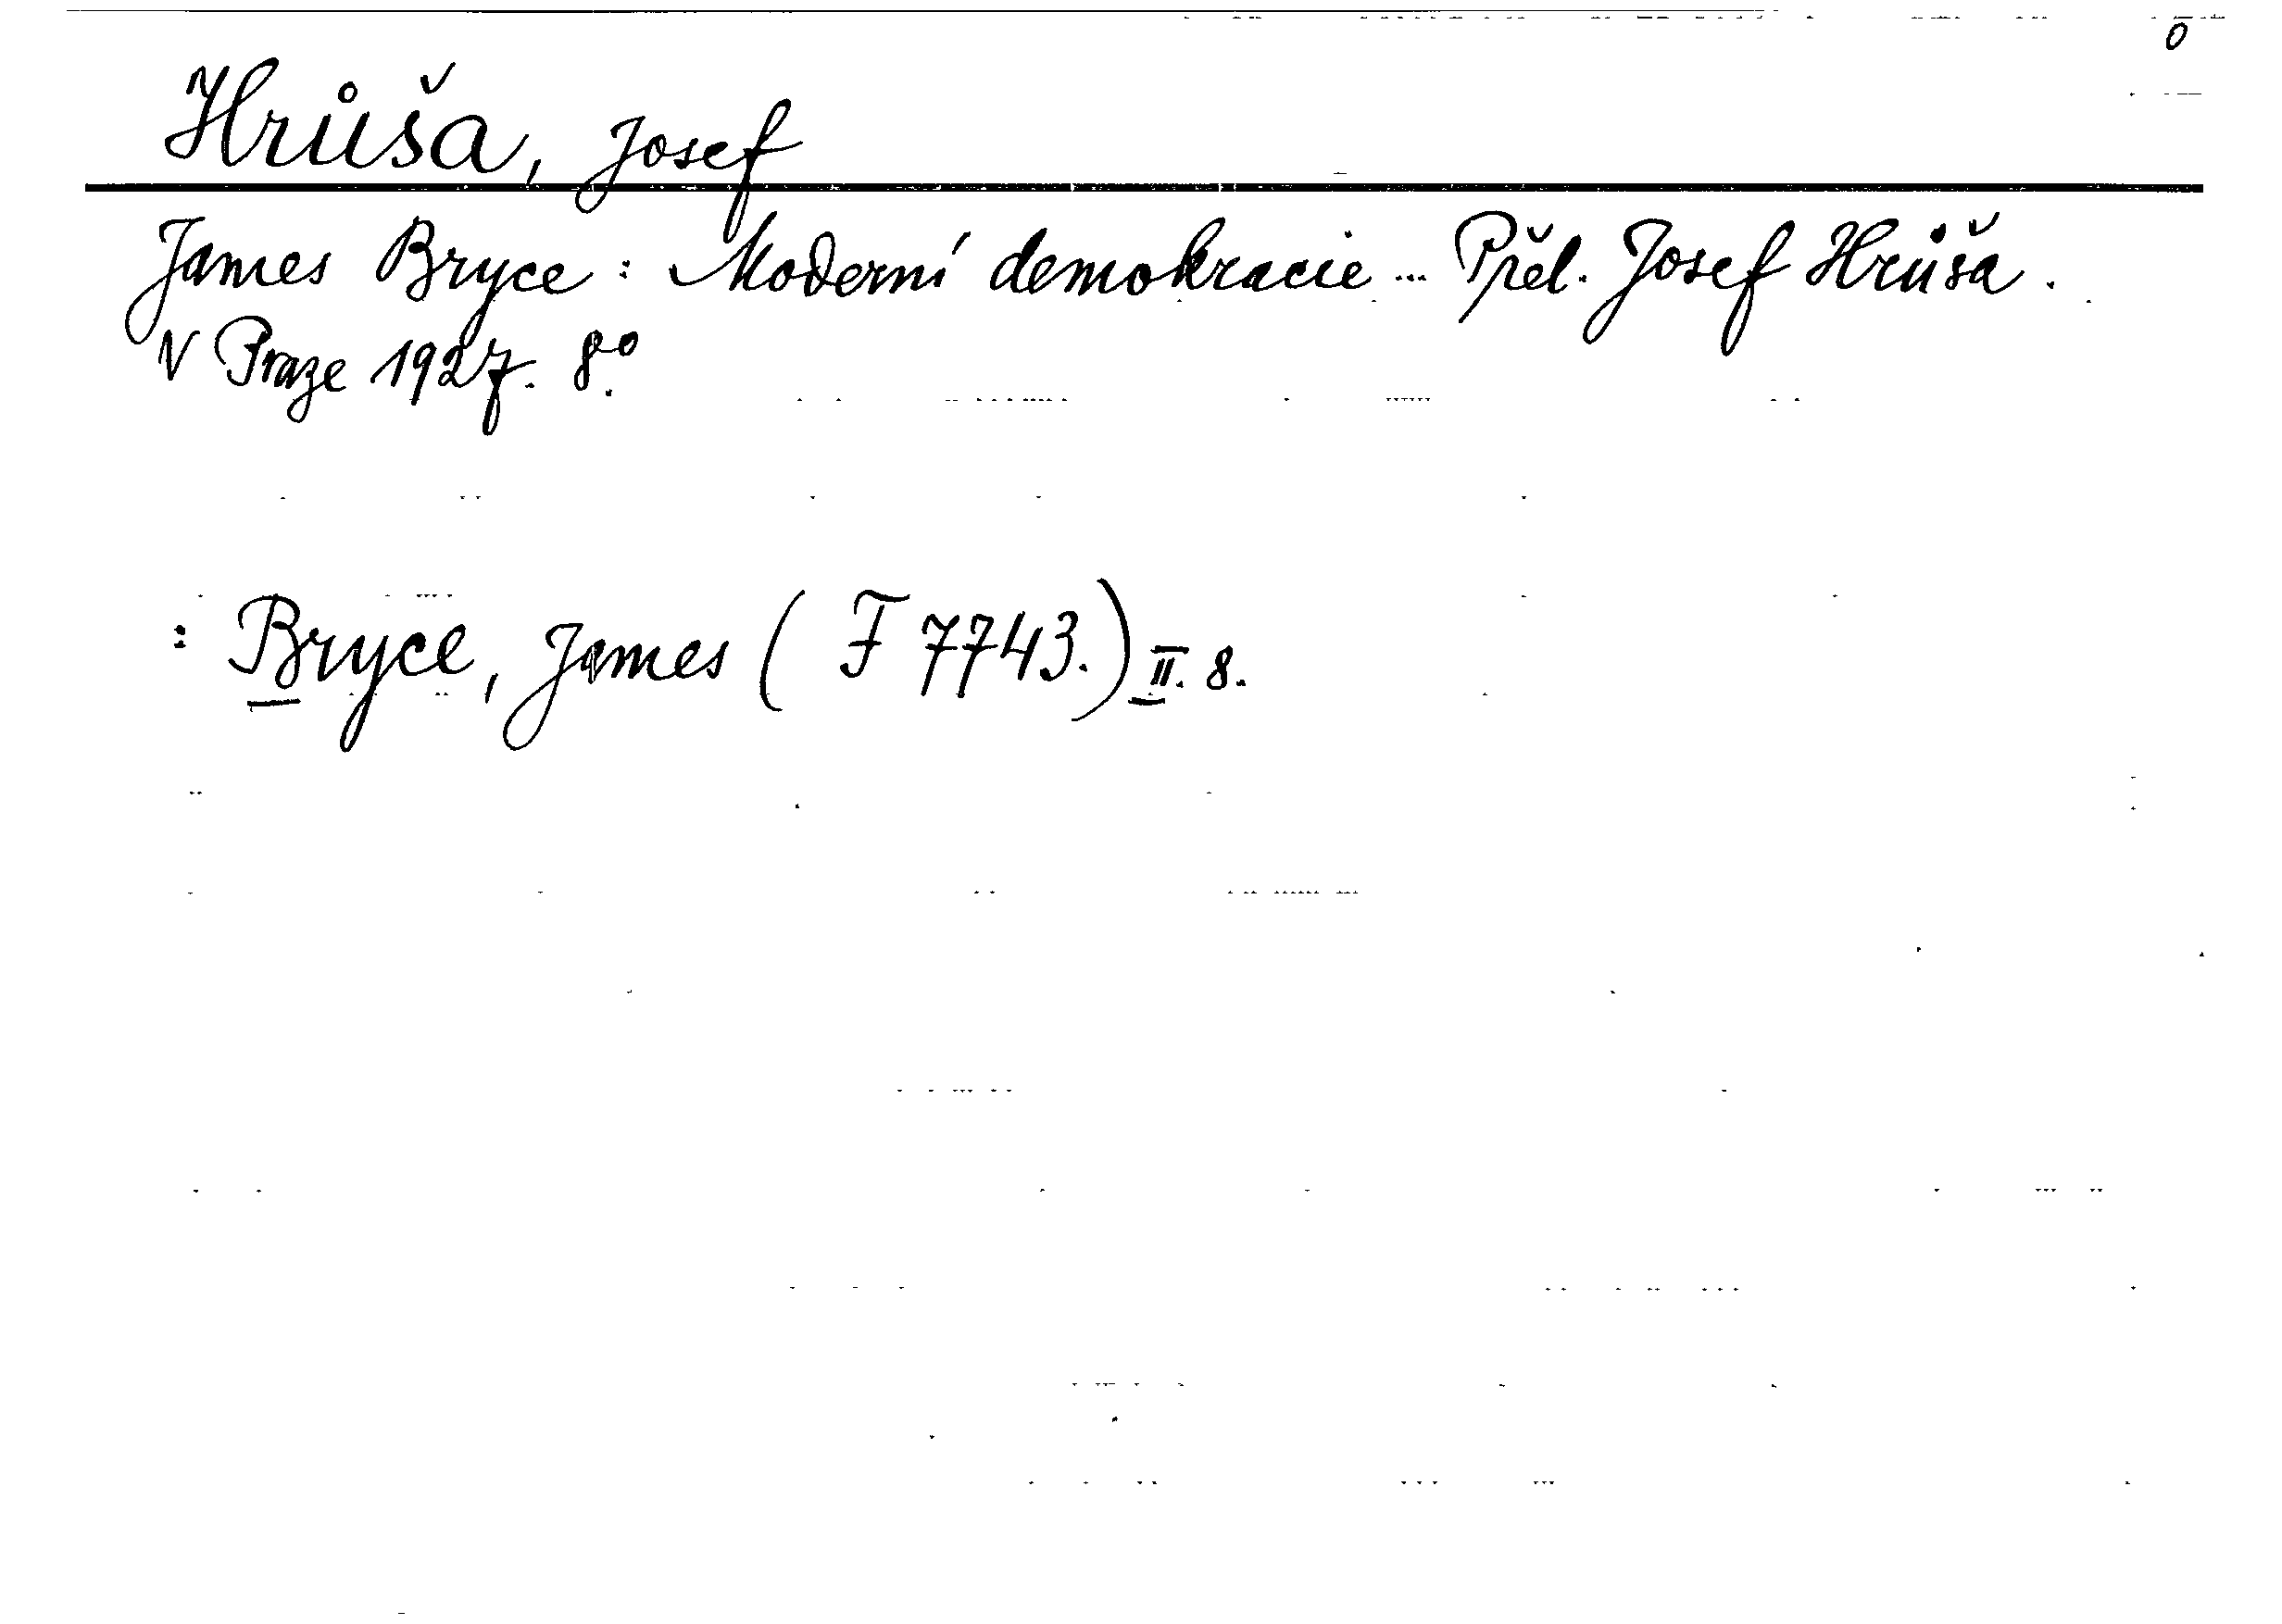 0
Hrůša, Josef
James Bryce: Moderní demokracie... Přel. Josef Hrůša.
V Praze 1927. 8°.
: Bryce, James (F 7743.) II. 8.